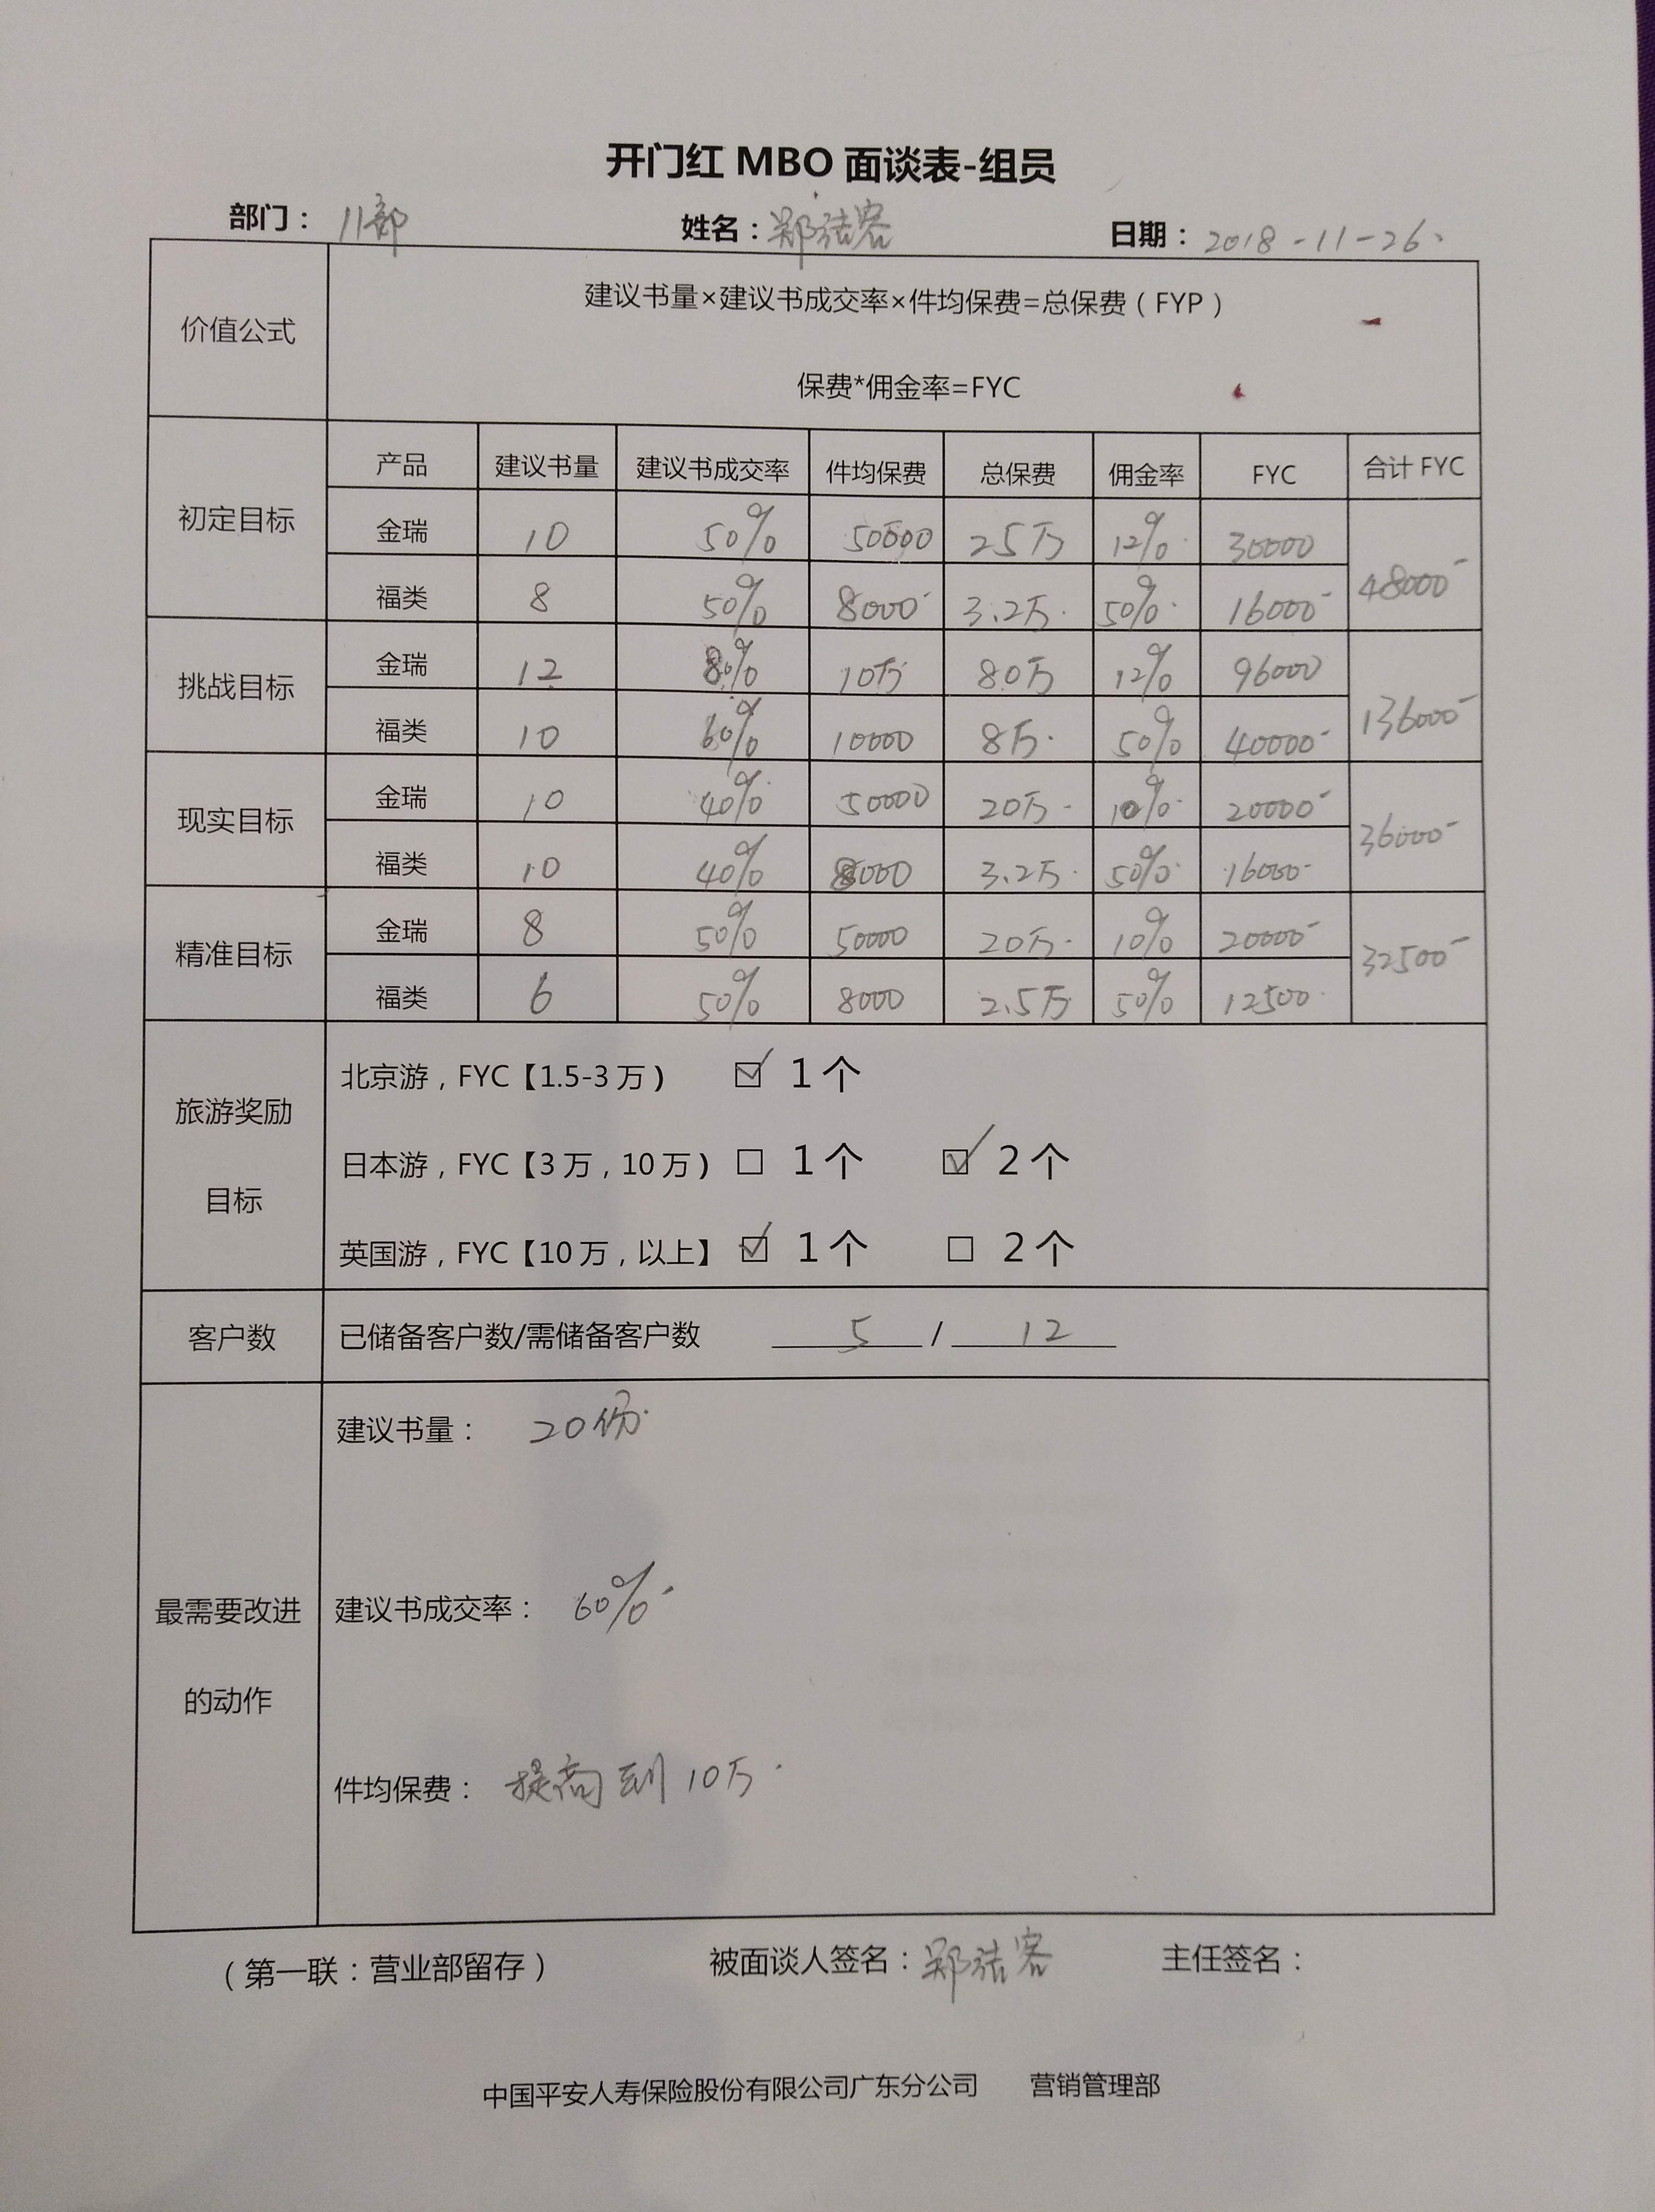 开门红 MBO 面谈表-组员
部门： 11部 姓名： 郑洁容 日期： 2018-11-26.
价值公式 建议书量×建议书成交率×件均保费=总保费（FYP）
保费*佣金率=FYC
产品 建议书量 建议书成交率 件均保费 总保费 佣金率 FYC 合计 FYC
初定目标 金瑞 10 50% 50000 25万 12% 30000 48000
福类 8 50% 8000 3.2万 50% 16000
挑战目标 金瑞 12 80% 10万 80万 12% 96000 136000
福类 10 60% 10000 8万 50% 40000
现实目标 金瑞 10 40% 50000 20万 10% 20000 36000
福类 10 40% 8000 3.2万 50% 16000
精准目标 金瑞 8 50% 50000 20万 10% 20000 32500
福类 6 50% 8000 2.5万 50% 12500
旅游奖励目标
北京游，FYC【1.5-3 万） ☑ 1 个
日本游，FYC【3 万，10 万） □ 1 个 ☑ 2 个
英国游，FYC【10 万，以上】 ☑ 1 个 □ 2 个
客户数 已储备客户数/需储备客户数 5 / 12
最需要改进的动作
建议书量： 20份
建议书成交率： 60%
件均保费： 提高到10万
（第一联：营业部留存） 被面谈人签名： 郑洁容 主任签名：
中国平安人寿保险股份有限公司广东分公司 营销管理部